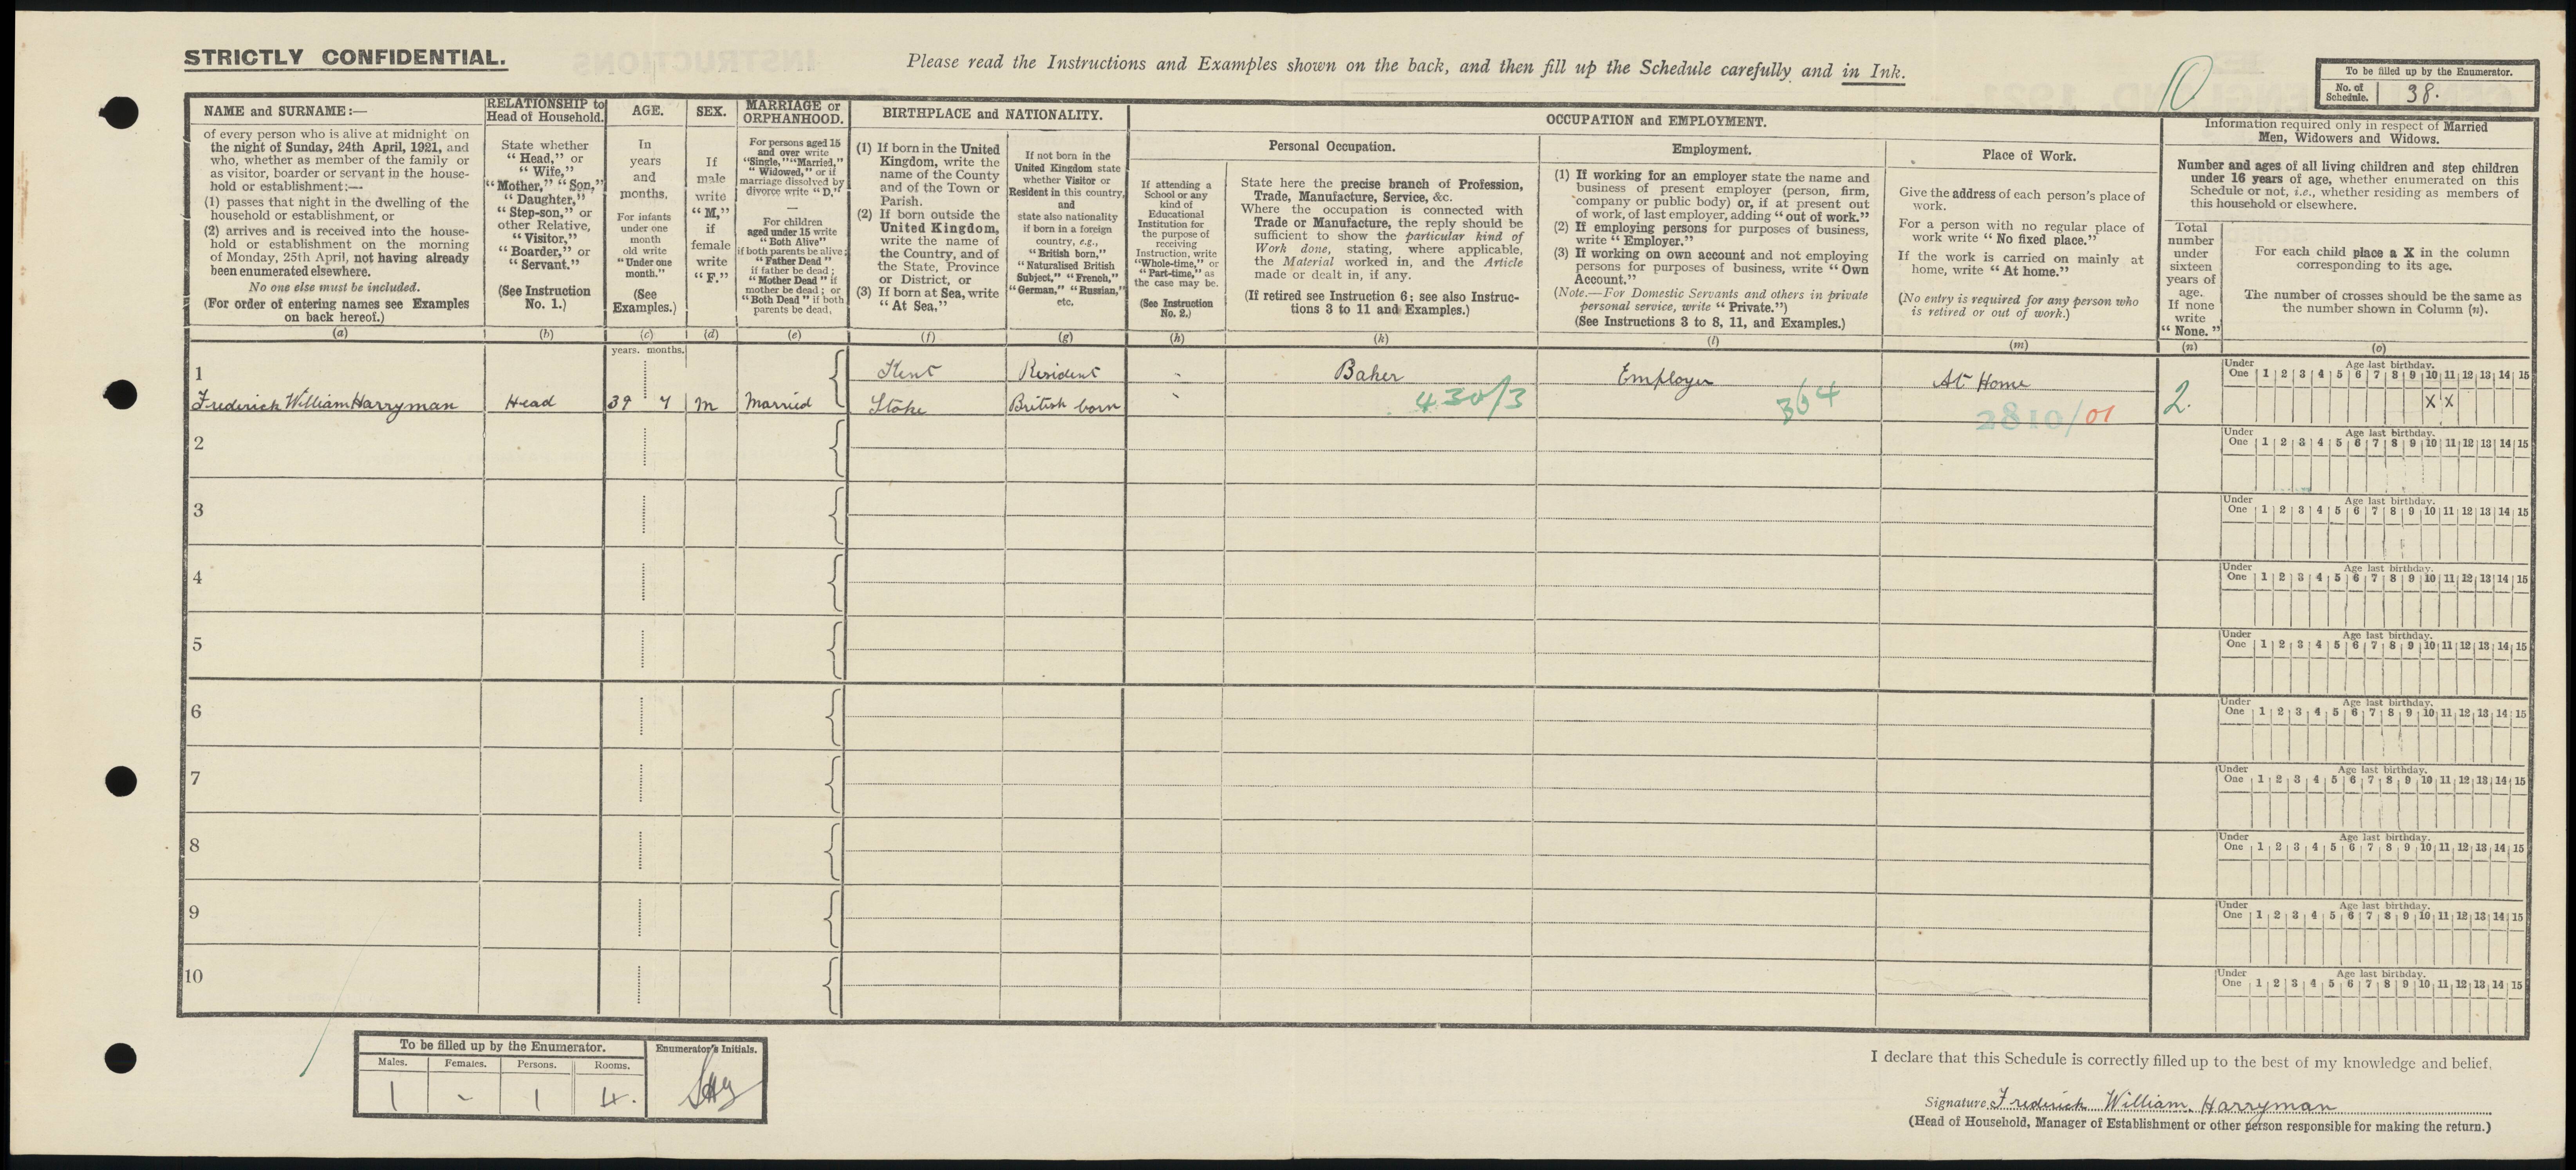 STRICTLY CONFIDENTIAL.
Please read the Instructions and Examples shown on the back, and then fill up the Schedule carefully and in Ink.
10
To be filled up by the Enumerator.
No. of Schedule. 38.
NAME and SURNAME:—
of every person who is alive at midnight on
the night of Sunday, 24th April, 1921, and
who, whether as member of the family or
as visitor, boarder or servant in the house-
hold or establishment:—
(1) passes that night in the dwelling of the
household or establishment, or
(2) arrives and is received into the house-
hold or establishment on the morning
of Monday, 25th April, not having already
been enumerated elsewhere.
No one else must be included.
(For order of entering names see Examples
on back hereof.)
(a)
RELATIONSHIP to
Head of Household.
State whether
"Head," or
"Wife,"
"Mother," "Son,"
"Daughter,"
"Step-son," or
other Relative,
"Visitor,"
"Boarder," or
"Servant."
(See Instruction
No. 1.)
(b)
AGE.
In
years
and
months.
For infants
under one
month
old write
"Under one
month."
(See
Examples.)
(c)
SEX.
If
male
write
"M,"
if
female
write
"F."
(d)
MARRIAGE or
ORPHANHOOD.
For persons aged 15
and over write
"Single," "Married,"
"Widowed," or if
marriage dissolved by
divorce write "D."
—
For children
aged under 15 write
"Both Alive"
if both parents be alive;
"Father Dead"
if father be dead;
"Mother Dead" if
mother be dead; or
"Both Dead" if both
parents be dead.
(e)
BIRTHPLACE and NATIONALITY.
(1) If born in the United
Kingdom, write the
name of the County
and of the Town or
Parish.
(2) If born outside the
United Kingdom,
write the name of
the Country, and of
the State, Province
or District, or
(3) If born at Sea, write
"At Sea,"
(f)
If not born in the
United Kingdom state
whether Visitor or
Resident in this country,
and
state also nationality
if born in a foreign
country, e.g.,
"British born,"
"Naturalised British
Subject," "French,"
"German," "Russian,"
etc.
(g)
OCCUPATION and EMPLOYMENT.
Personal Occupation.
If attending a
School or any
kind of
Educational
Institution for
the purpose of
receiving
Instruction, write
"Whole-time," or
"Part-time," as
the case may be.
(See Instruction
No. 2.)
(h)
State here the precise branch of Profession,
Trade, Manufacture, Service, &c.
Where the occupation is connected with
Trade or Manufacture, the reply should be
sufficient to show the particular kind of
Work done, stating, where applicable,
the Material worked in, and the Article
made or dealt in, if any.
(If retired see Instruction 6; see also Instruc-
tions 3 to 11 and Examples.)
(k)
Employment.
(1) If working for an employer state the name and
business of present employer (person, firm,
company or public body) or, if at present out
of work, of last employer, adding "out of work."
(2) If employing persons for purposes of business,
write "Employer."
(3) If working on own account and not employing
persons for purposes of business, write "Own
Account."
(Note.—For Domestic Servants and others in private
personal service, write "Private.")
(See Instructions 3 to 8, 11, and Examples.)
(l)
Place of Work.
Give the address of each person's place of
work.
For a person with no regular place of
work write "No fixed place."
If the work is carried on mainly at
home, write "At home."
(No entry is required for any person who
is retired or out of work.)
(m)
Information required only in respect of Married
Men, Widowers and Widows.
Number and ages of all living children and step children
under 16 years of age, whether enumerated on this
Schedule or not, i.e., whether residing as members of
this household or elsewhere.
Total
number
under
sixteen
years of
age.
If none
write
"None."
(n)
For each child place a X in the column
corresponding to its age.
The number of crosses should be the same as
the number shown in Column (n).
(o)
years. months.
1
Frederick William Harryman Head 39 7 M Married
Kent Resident - Baker Employer At Home
Stoke British born - 430/3 364 2810/01
2.
Under One Age last birthday. 1 2 3 4 5 6 7 8 9 10 11 12 13 14 15
X X
2
Under One Age last birthday. 1 2 3 4 5 6 7 8 9 10 11 12 13 14 15
3
Under One Age last birthday. 1 2 3 4 5 6 7 8 9 10 11 12 13 14 15
4
Under One Age last birthday. 1 2 3 4 5 6 7 8 9 10 11 12 13 14 15
5
Under One Age last birthday. 1 2 3 4 5 6 7 8 9 10 11 12 13 14 15
6
Under One Age last birthday. 1 2 3 4 5 6 7 8 9 10 11 12 13 14 15
7
Under One Age last birthday. 1 2 3 4 5 6 7 8 9 10 11 12 13 14 15
8
Under One Age last birthday. 1 2 3 4 5 6 7 8 9 10 11 12 13 14 15
9
Under One Age last birthday. 1 2 3 4 5 6 7 8 9 10 11 12 13 14 15
10
Under One Age last birthday. 1 2 3 4 5 6 7 8 9 10 11 12 13 14 15
To be filled up by the Enumerator.
Males. Females. Persons. Rooms.
1 - 1 4.
Enumerator's Initials.
I declare that this Schedule is correctly filled up to the best of my knowledge and belief.
Signature Frederick William Harryman
(Head of Household, Manager of Establishment or other person responsible for making the return.)